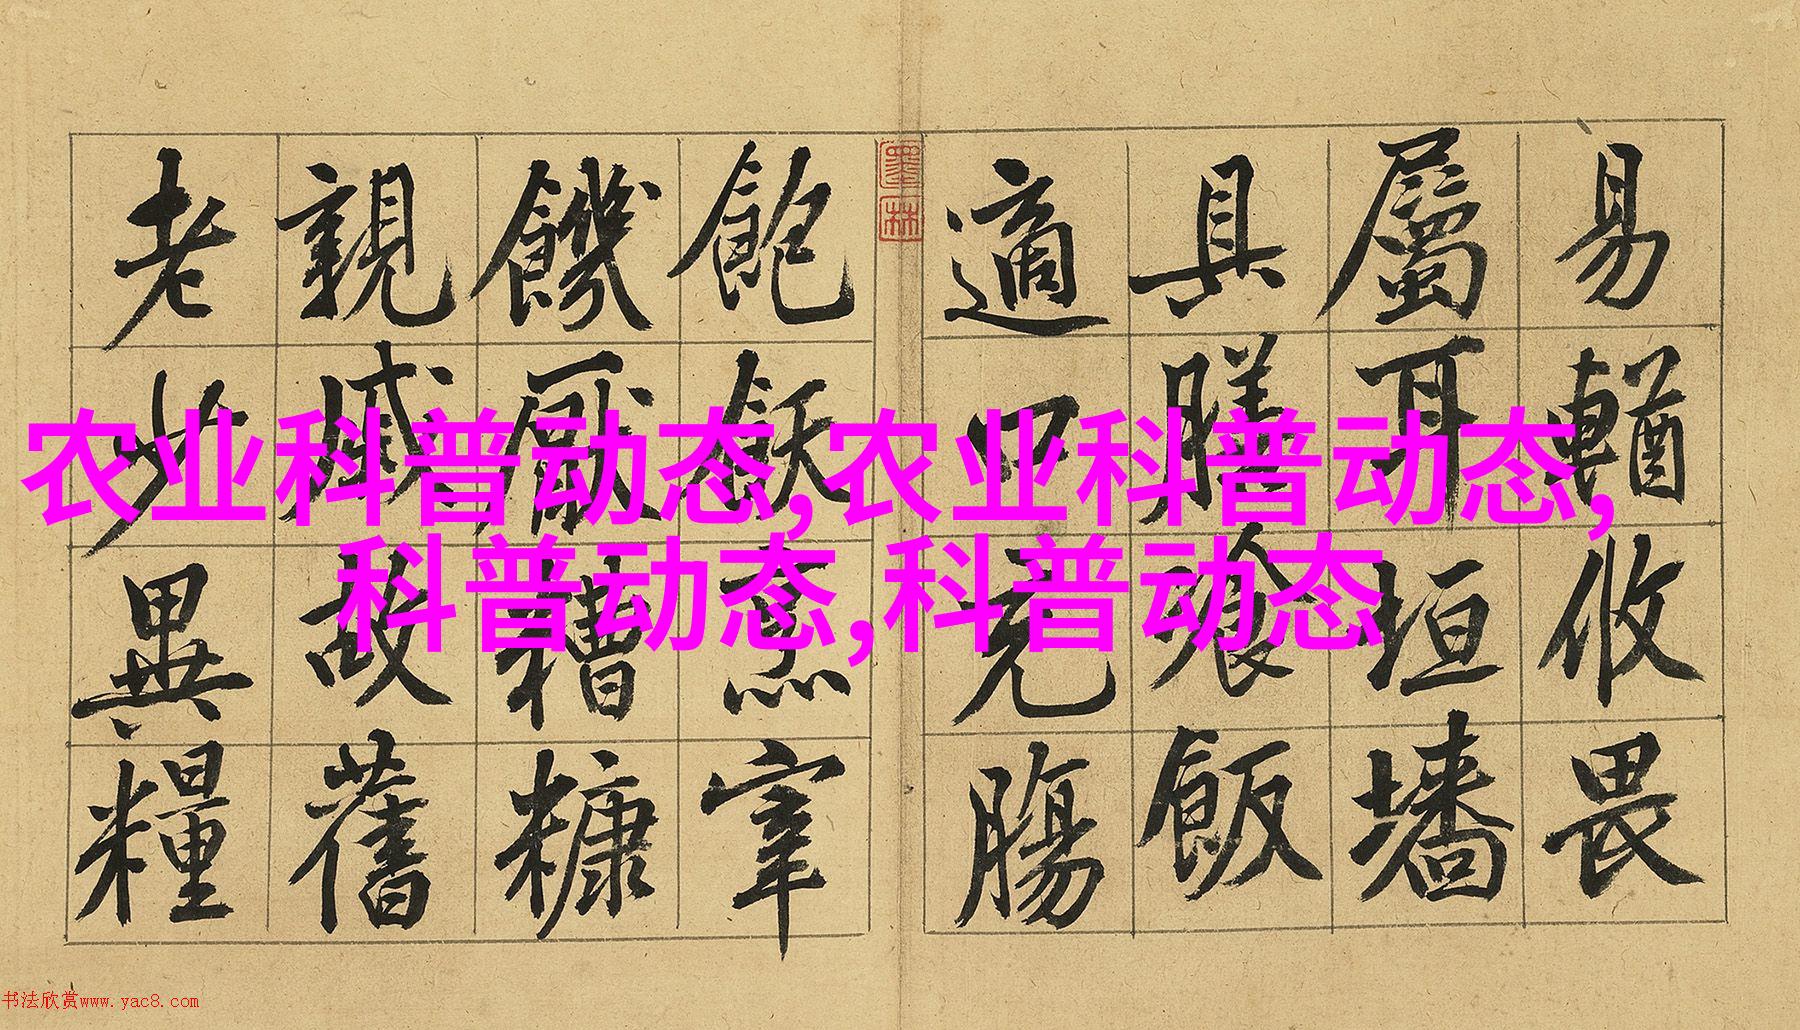 易輶攸畏
屬耳垣墻
具膳飡飯
適口充腸
飽飫烹宰
饑厭糟糠
親戚故舊
老少異糧
墨林
农业科普动态,农业科普动态,
科普动态,科普动态
书法欣赏www.yac8.com